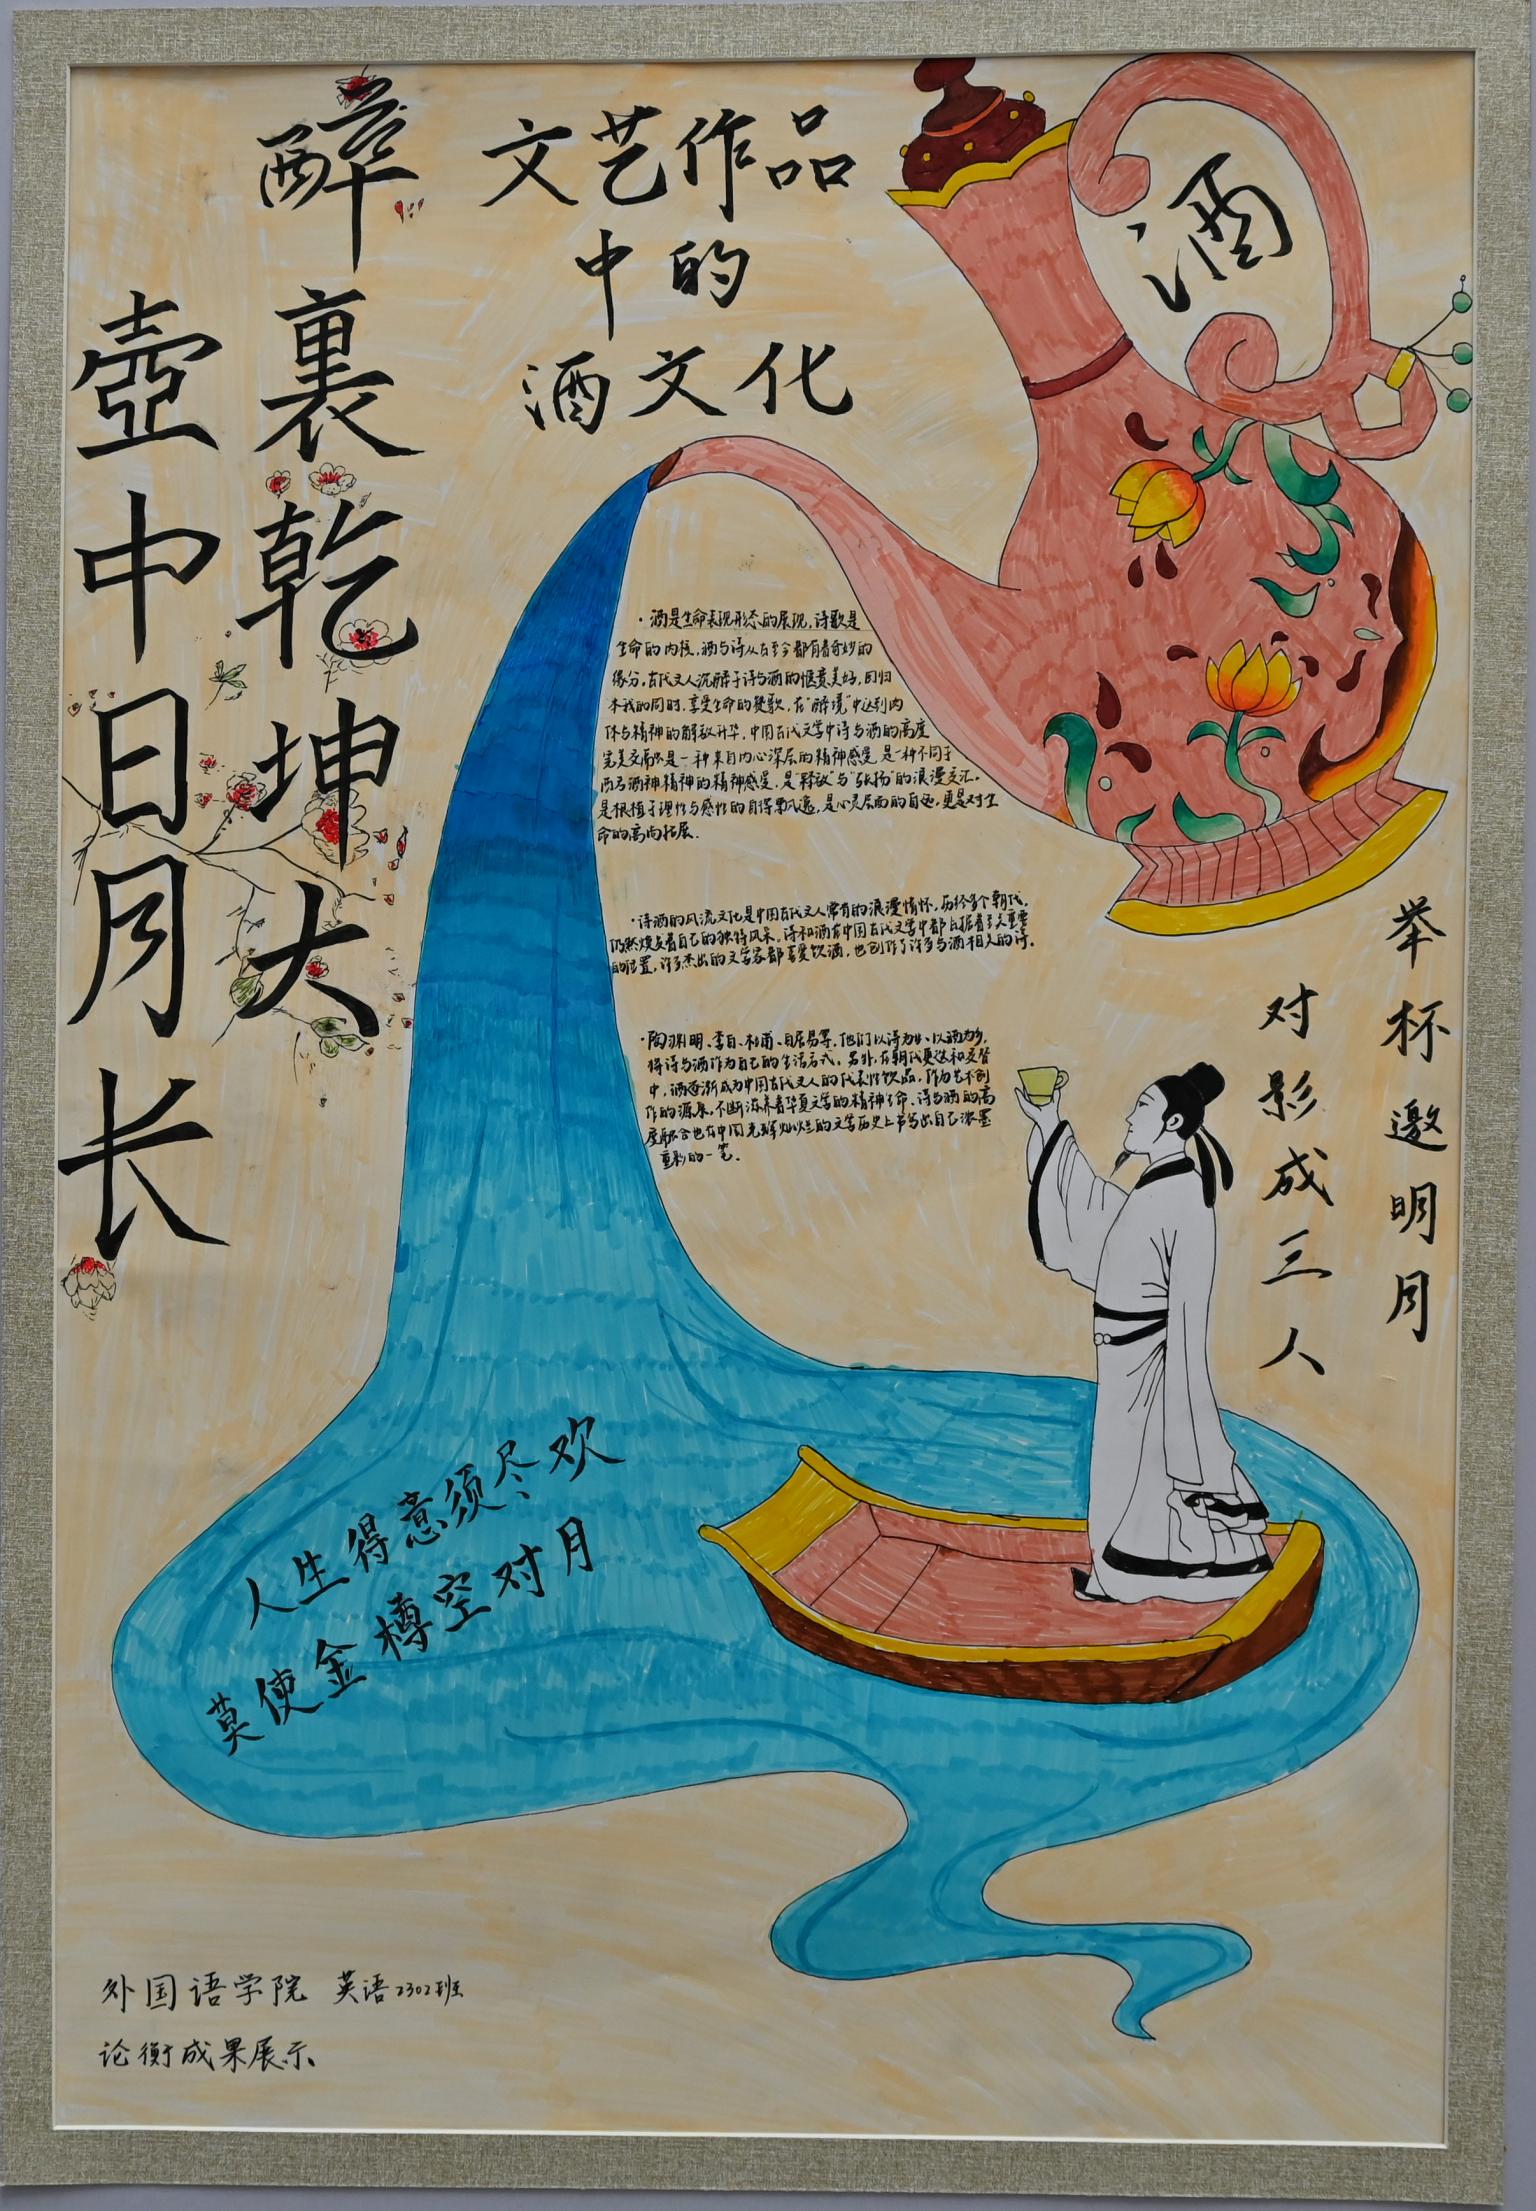 醉裏乾坤大
壺中日月长
文艺作品
中的
酒文化
酒
·酒是生命表现形态的展现,诗歌是
生命的内核,酒与诗从古至今都有着奇妙的
缘分,古代文人沉醉于诗与酒的惬意美好,回归
本我的同时,享受生命的赞歌,在“醉境”中达到肉
体与精神的解放升华,中国古代文学中诗与酒的高度
完美交融是一种来自内心深层的精神感受,是一种不同于
西方酒神精神的精神感受,是“释放”与“张扬”的浪漫交汇。
是根植于理性与感性的自得飘逸,是心灵层面的自, 更是对生
命的高尚拓展.
·诗酒的风流文化是中国古代文人常有的浪漫情怀,历经多个朝代,
仍然焕发着自己的独特风采。诗和酒在中国古代文学中都占据着至关重要
的位置,许多杰出的文学家都喜爱饮酒,也创作了许多与酒相关的诗。
·陶渊明、李白、杜甫、白居易等,他们以诗为业、以酒为乡,
将诗与酒作为自己的生活方式。另外,在朝代更迭和交替
中,酒逐渐成为中国古代文人的代表性饮品,作为艺术创
作的源泉,不断滋养着华夏文学的精神生命、诗与酒的高
度融合也在中国光辉灿烂的文学历史上书写出自己浓墨
重彩的一笔。
举杯邀明月
对影成三人
人生得意须尽欢
莫使金樽空对月
外国语学院 英语2302班
论衡成果展示